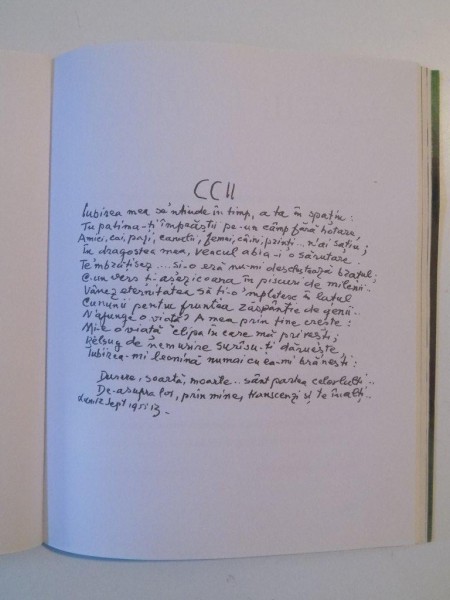 CCII
Iubirea mea se'ntinde în timp, a ta în spațiu:
Tu patima-ți împrăștii pe-un câmp fără hotare,
Amici, cai, paji, cavaleri, femei, câini, prinți... n'ai sațiu;
În dragostea mea, veacul abia-i o sărutare.
Te'mbrățișez.... și-o eră nu-mi descleștează brațul;
C-un vers ți-așez icoana în piscuri de milenii..
Vânez eternitatea să ți-o'mpletesc în lațul
Cununii pentru fruntea răsfântîe de genii..
N'ajunge o viață? A mea prin tine crește:
Mi-e o viață clipa în care mă privești;
Belșug de nemurire surîsu-ți dăruește
Iubirea-mi leonină numai cu ea-mi hrănești:
Durere, soartă, moarte.. sânt partea celorlalți..
De-asupra lor, prin mine, transcenzi și te înalți..
Luni 12 Sept 1955 13-